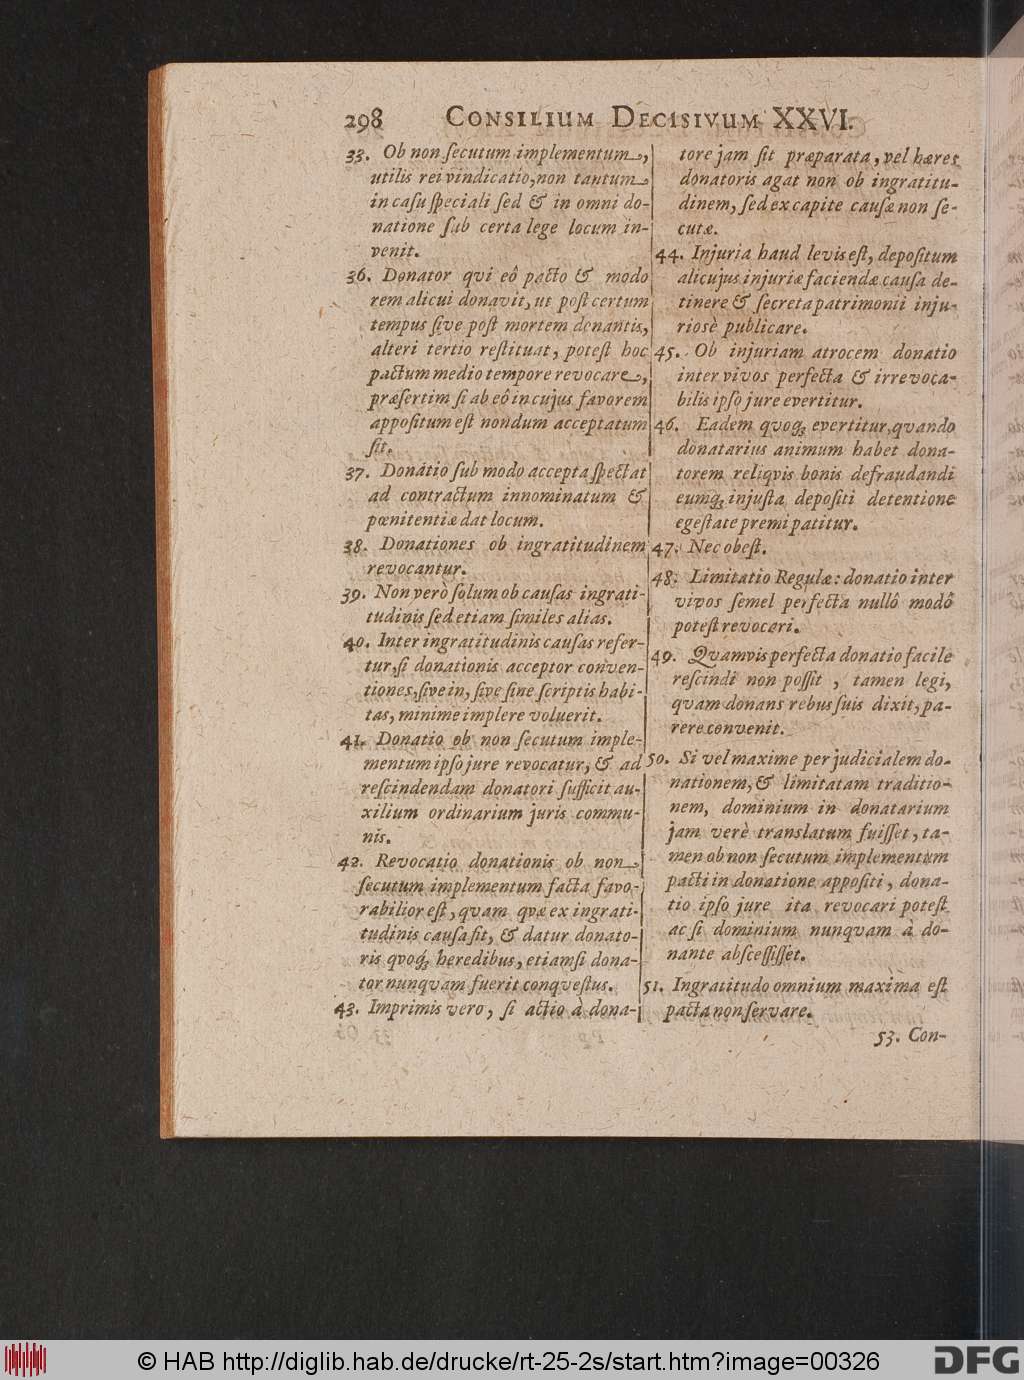 298 CONSILIUM DECISIVUM XXVI.
33. Ob non ſecutum implementum,
utilis rei vindicatio, non tantum
in caſu ſpeciali ſed & in omni do-
natione ſub certa lege locum in-
venit.
36. Donator qvi eô pacto & modo
rem alicui donavit, ut poſt certum
tempus ſive poſt mortem donantis,
alteri tertio reſtituat, poteſt hoc
pactum medio tempore revocare,
præſertim ſi ab eô in cujus favorem
appoſitum eſt nondum acceptatum
ſit.
37. Donatio ſub modo accepta ſpectat
ad contractum innominatum &
pœnitentiæ dat locum.
38. Donationes ob ingratitudinem
revocantur.
39. Non verò ſolum ob cauſas ingrati-
tudinis ſed etiam ſimiles alias.
40. Inter ingratitudinis cauſas refer-
tur, ſi donationis acceptor conven-
tiones, ſive in, ſive ſine ſcriptis habi-
tas, minime implere voluerit.
41. Donatio ob non ſecutum imple-
mentum ipſo jure revocatur, & ad
reſcindendam donatori ſufficit au-
xilium ordinarium juris commu-
nis.
42. Revocatio donationis ob non
ſecutum implementum facta favo-
rabilior eſt, qvam qvæ ex ingrati-
tudinis cauſa ſit, & datur donato-
ris qvoq́ꝫ heredibus, etiamſi dona-
tor nunqvam fuerit conqveſtus.
43. Imprimis vero, ſi actio à dona-
tore jam ſit præparata, vel hæres
donatoris agat non ob ingratitu-
dinem, ſed ex capite cauſæ non ſe-
cutæ.
44. Injuria haud levis eſt, depoſitum
alicujus injuriæ faciendæ cauſa de-
tinere & ſecreta patrimonii inju-
riosè publicare.
45. Ob injuriam atrocem donatio
inter vivos perfecta & irrevoca-
bilis ipſo jure evertitur.
46. Eadem qvoqꝫ evertitur, qvando
donatarius animum habet dona-
torem reliqvis bonis defraudandi
eumqꝫ injuſta depoſiti detentione
egeſtate premi patitur.
47. Nec obeſt.
48. Limitatio Regulæ: donatio inter
vivos ſemel perfecta nullô modô
poteſt revocari.
49. Qvamvis perfecta donatio facile
reſcindi non poſſit, tamen legi,
qvam donans rebus ſuis dixit, pa-
rere convenit.
50. Si vel maxime per judicialem do-
nationem, & limitatam traditio-
nem, dominium in donatarium
jam verè translatum fuiſſet, ta-
men ob non ſecutum implementum
pacti in donatione appoſiti, dona-
tio ipſo jure ita revocari poteſt
ac ſi dominium nunqvam à do-
nante abſceſſiſſet.
51. Ingratitudo omnium maxima eſt
pacta non ſervare.
53. Con-
© HAB http://diglib.hab.de/drucke/rt-25-2s/start.htm?image=00326
DFG